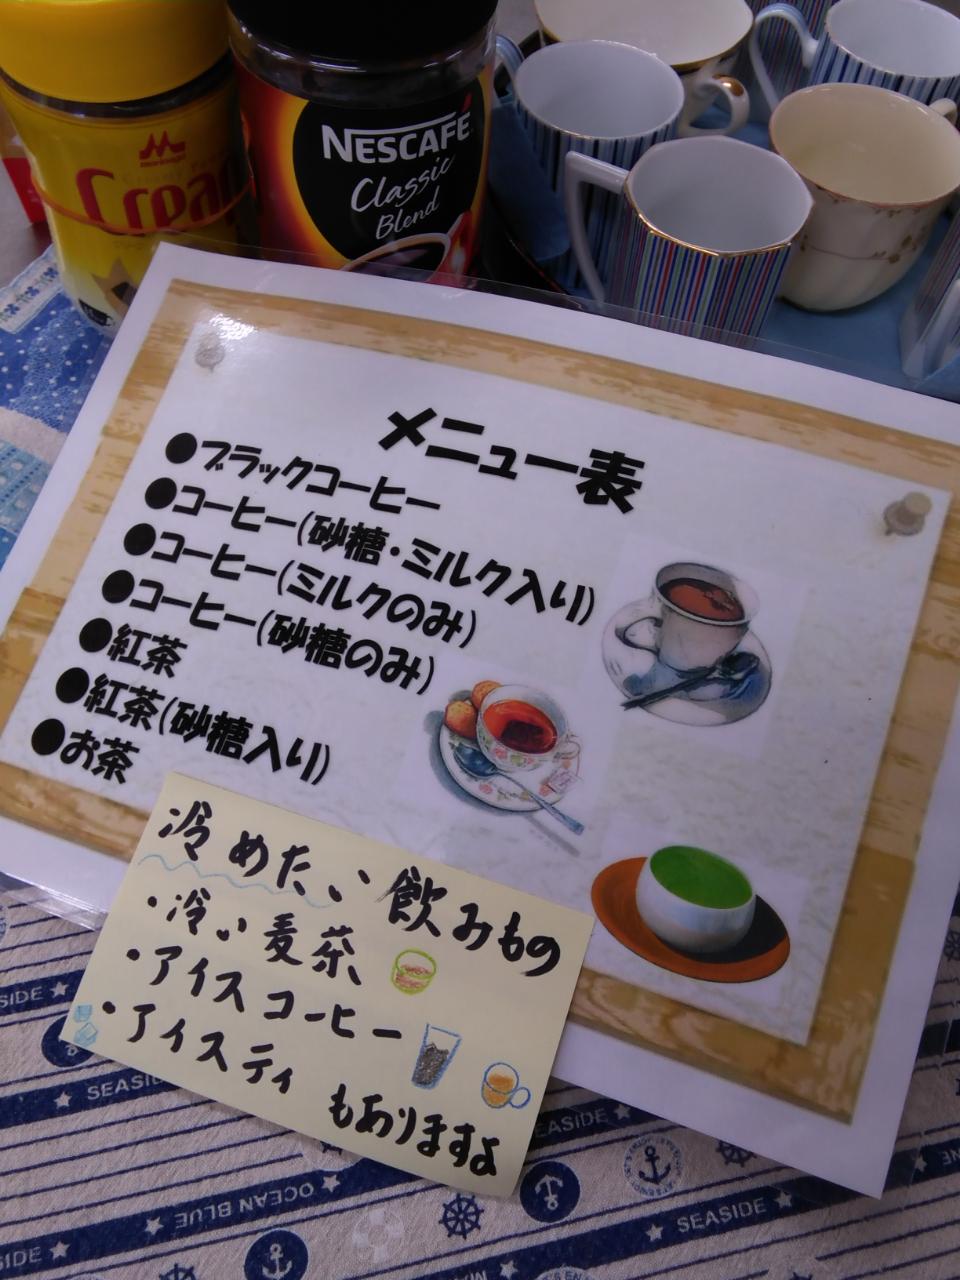 morinaga
Creap
NESCAFÉ
Classic
Blend
メニュー表
●ブラックコーヒー
●コーヒー(砂糖・ミルク入り)
●コーヒー(ミルクのみ)
●コーヒー(砂糖のみ)
●紅茶
●紅茶(砂糖入り)
●お茶
冷めたい飲みもの
・冷い麦茶
・アイスコーヒー
・アイスティ
もありますよ
SEASIDE
SEASIDE
SEASIDE
OCEAN BLUE
SEASIDE
SEASIDE